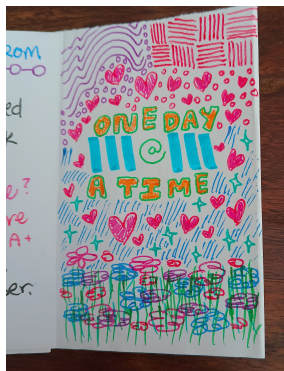 ROM
ed
k
e?
re
A+
er.
ONE DAY
@
A TIME